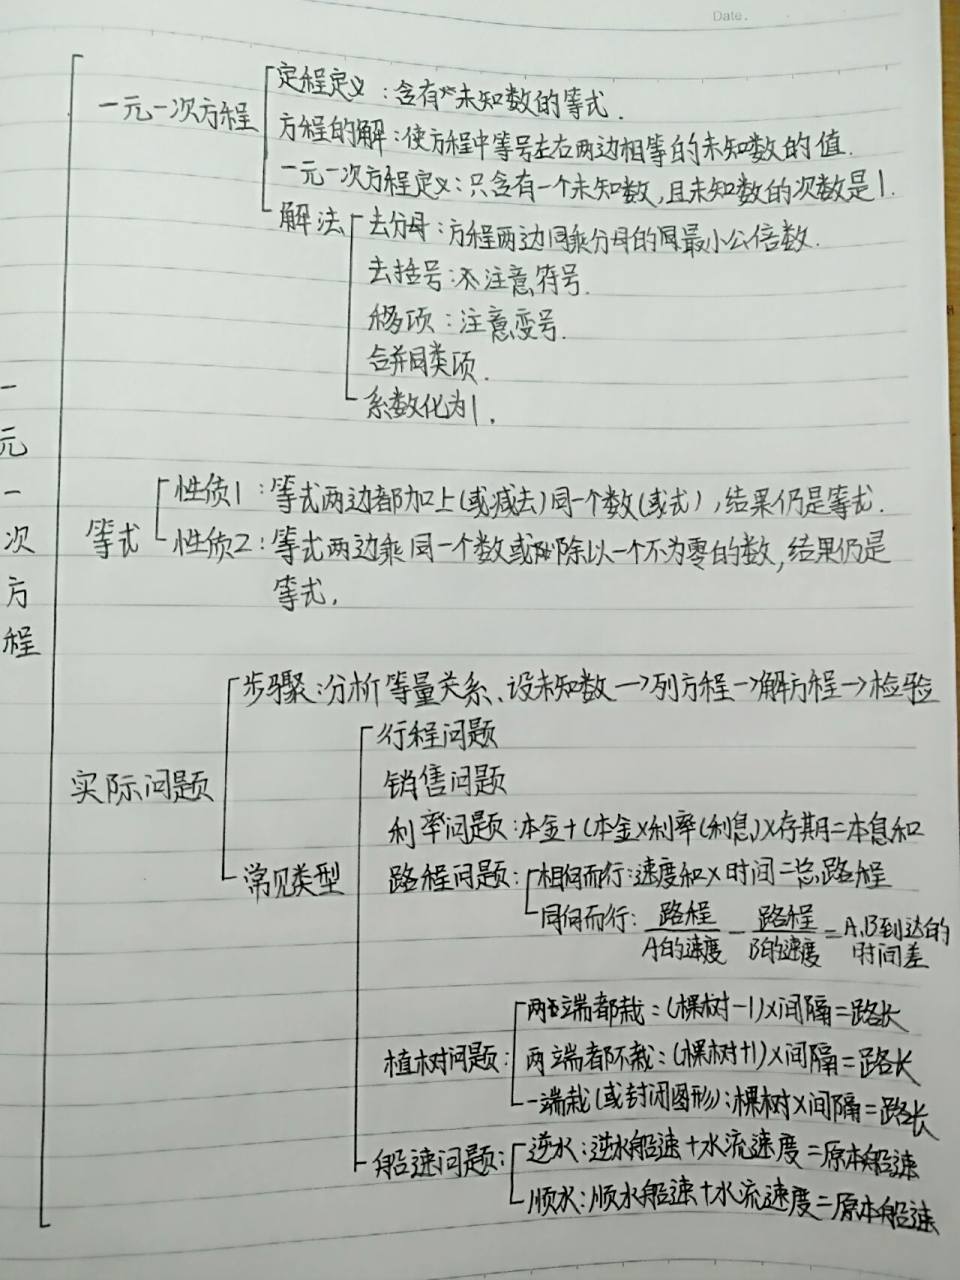 Date.
一元一次方程
定程定义：含有未知数的等式.
方程的解：使方程中等号左右两边相等的未知数的值.
一元一次方程定义：只含有一个未知数,且未知数的次数是1.
解法
去分母：方程两边同乘分母的同最小公倍数.
去括号：不注意符号.
移项：注意变号.
合并同类项.
系数化为1.
一元一次方程
等式
性质1：等式两边都加上(或减去)同一个数(或式),结果仍是等式.
性质2：等式两边乘同一个数或除以一个不为零的数,结果仍是
等式.
实际问题
步骤：分析等量关系、设未知数→列方程→解方程→检验
常见类型
行程问题
销售问题
利率问题：本金+(本金×利率(利息)×存期=本息和
路程问题：
相向而行：速度和×时间=总路程
同向而行：路程/A的速度-路程/B的速度=A.B到达的
时间差
植树问题：
两端都栽：(棵树-1)×间隔=路长
两端都不栽：(棵树+1)×间隔=路长
一端栽(或封闭图形)：棵树×间隔=路长
船速问题：
逆水：逆水船速+水流速度=原本船速
顺水：顺水船速+水流速度=原本船速